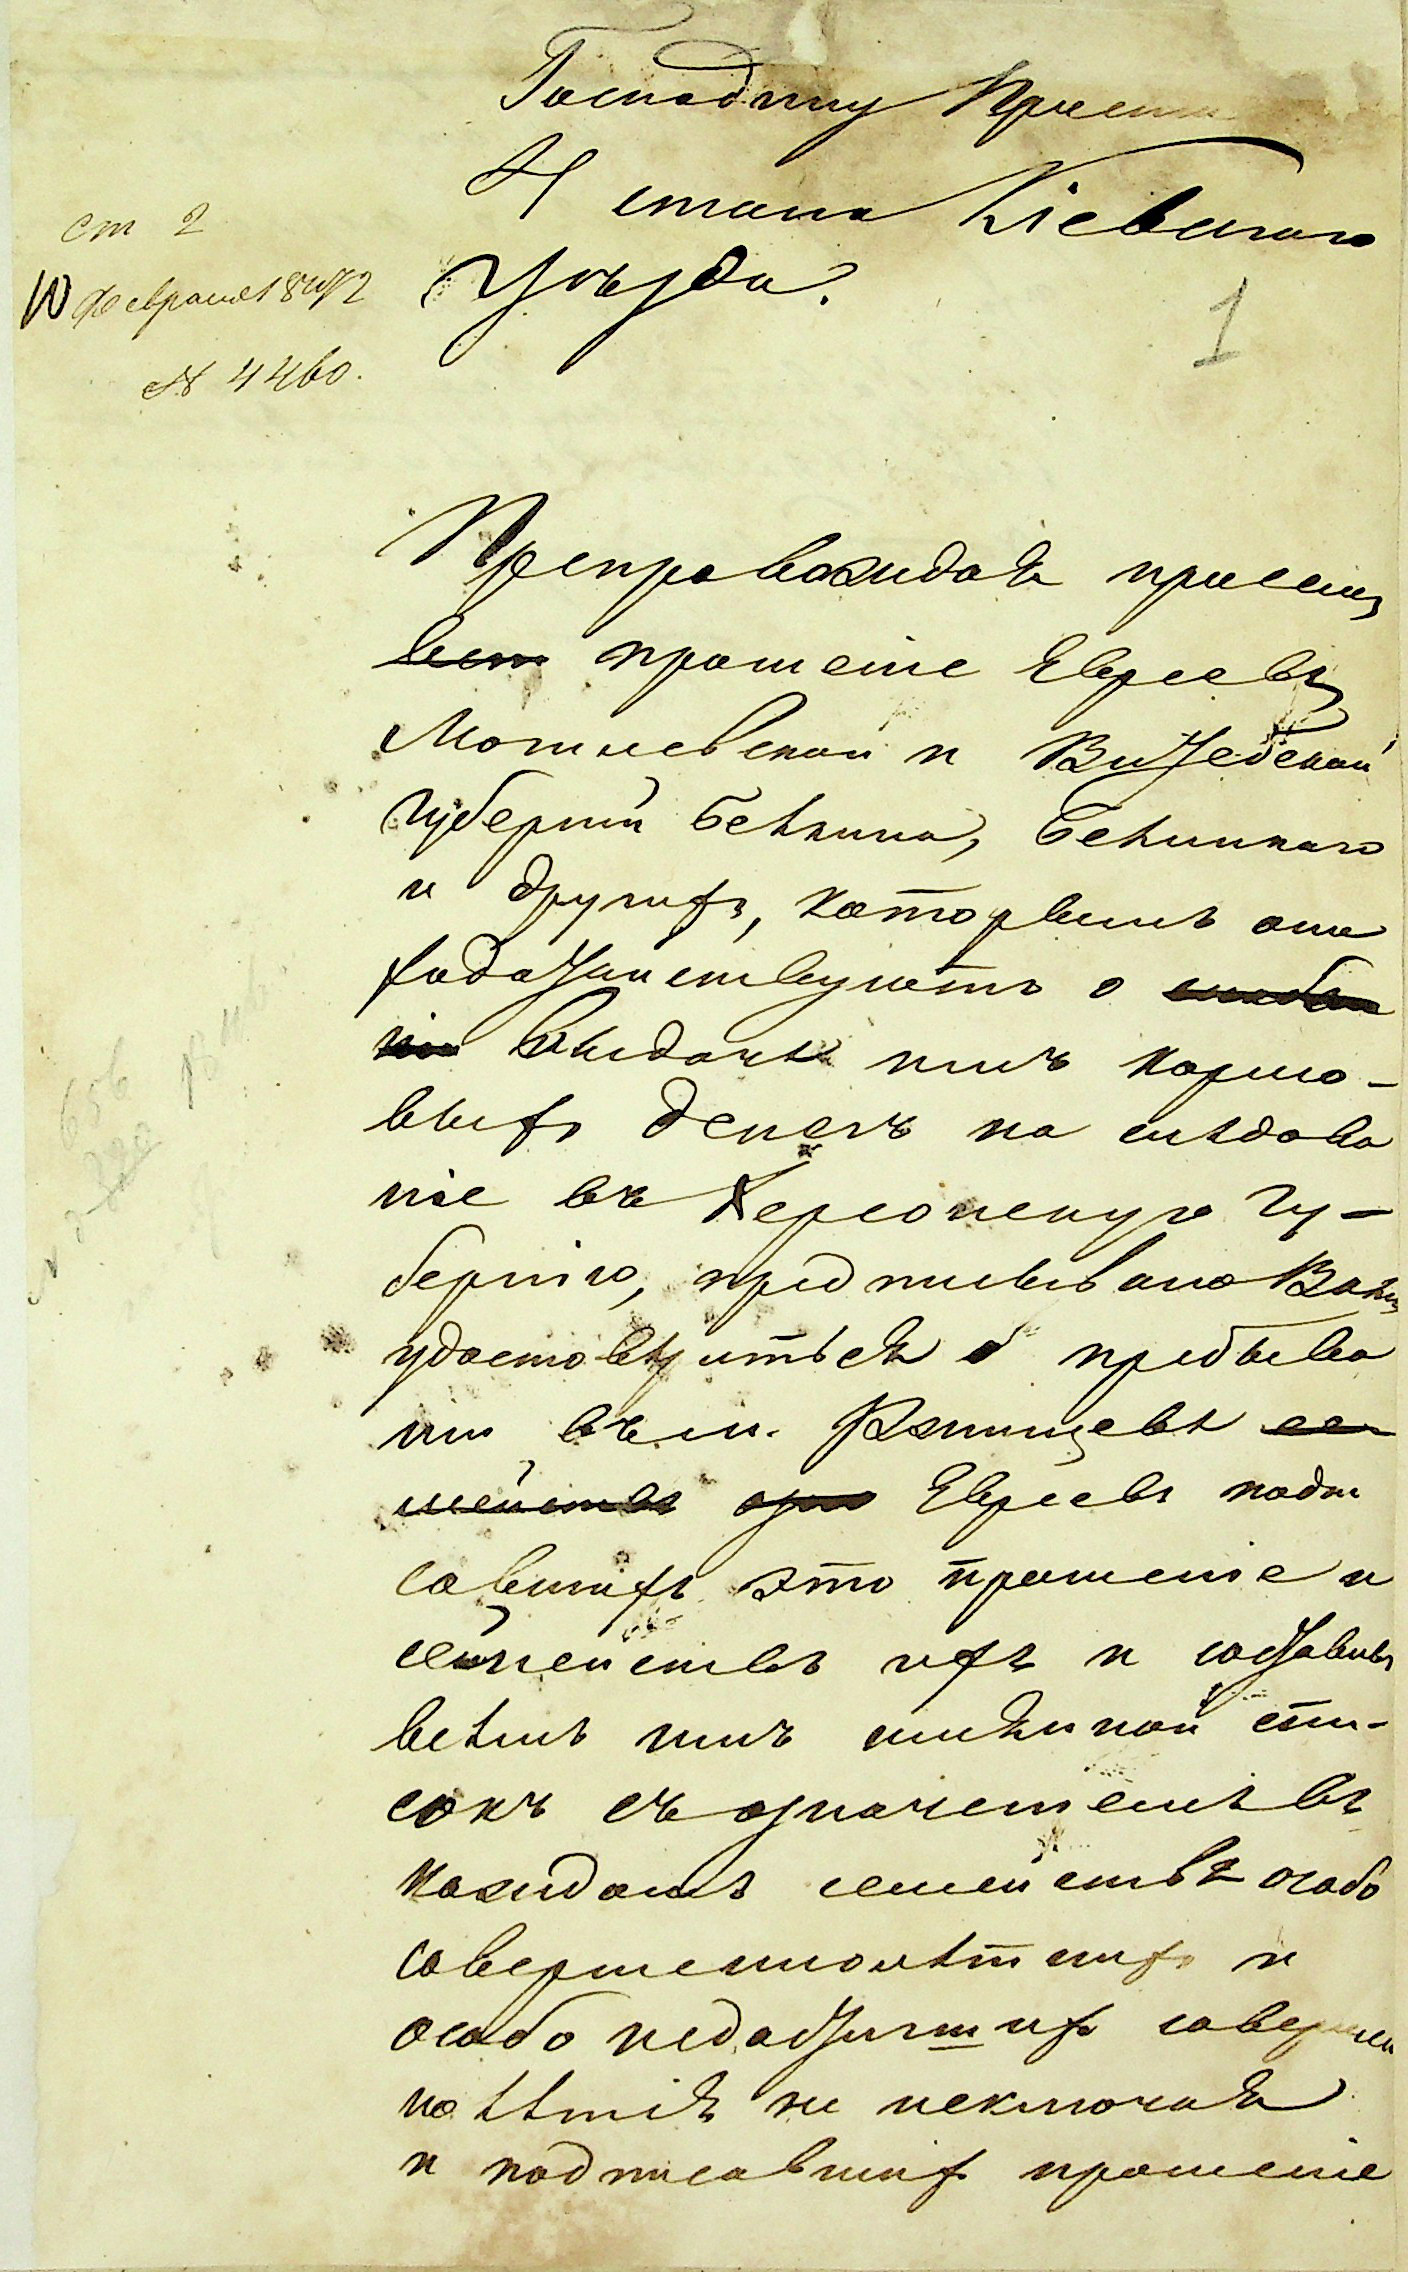 Господину Приста
4 стана Кіевскаго
Уѣзда.
ст 2
10 Февраля 1842
№ 4460.
1
Препровождая при семъ
прошеніе Евреевъ
Могилевской и Витебской
губерній Белкина, Белицкаго
и другихъ, которымъ они
ходатайствуютъ о
выдачѣ имъ кормо-
выхъ денегъ на слѣдова
ніе въ Херсонскую Гу-
бернію, предписываю Вамъ
удостовѣриться о пребыва
ніи въ м. Ржищевѣ
Евреевъ подпи
савшихъ это прошеніе и
семействъ ихъ и составивъ
всѣмъ имъ имянной спи-
сокъ съ означеніемъ въ
каждомъ семействѣ особо
совершеннолѣтнихъ и
особо недостигшихъ совершен
нолѣтія не исключая
и подписавшихъ прошеніе